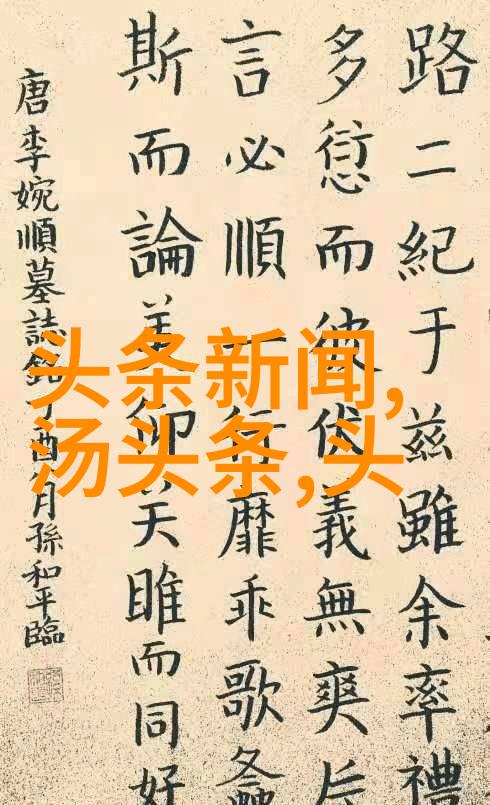 路二紀于兹雖余率禮
多愆而彼伏義無爽
言必順行靡乖歌
斯而論美仰关睢而同好
唐李婉順墓誌銘丁酉月孫和平臨
头条新闻,
汤头条,头